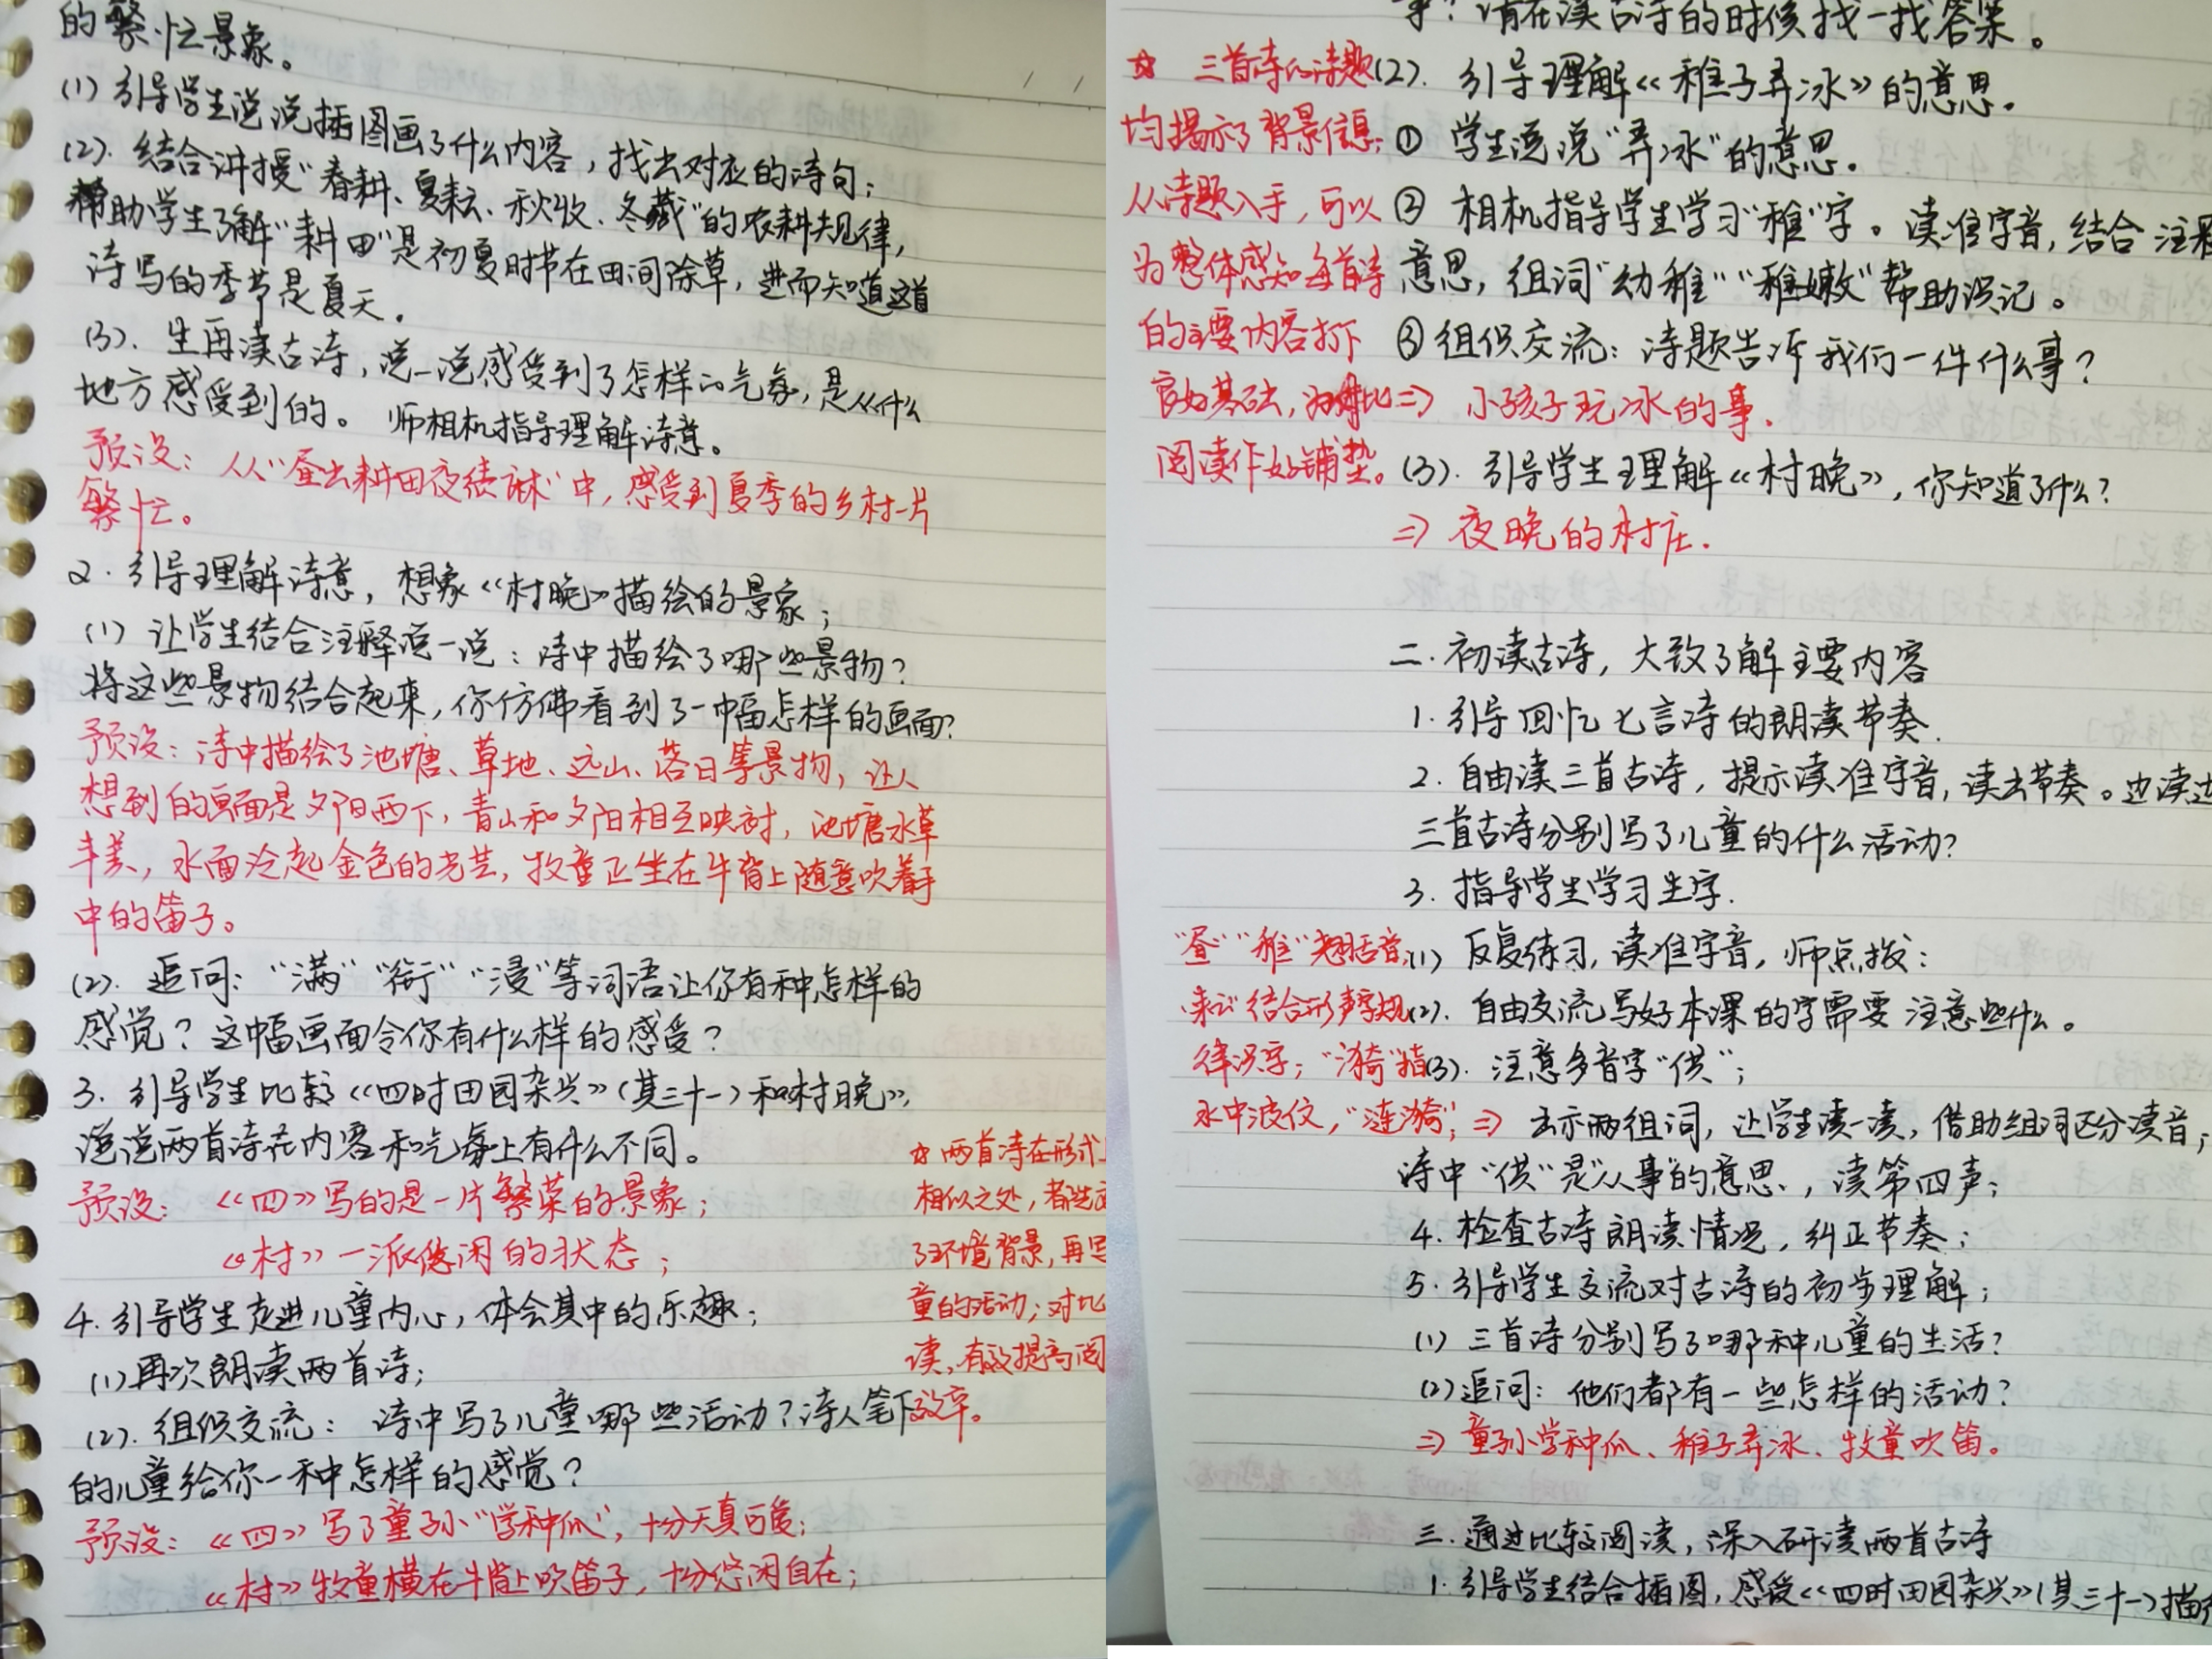 的繁忙景象。
(1) 引导学生说说插图画了什么内容，找出对应的诗句；
(2). 结合讲授"春耕、夏耘、秋收、冬藏"的农耕规律，
帮助学生了解"耘田"是初夏时节在田间除草，进而知道这首
诗写的季节是夏天.
(3). 生再读古诗，说一说感受到了怎样的气氛，是从什么
地方感受到的。师相机指导理解诗意。
预设：从"昼出耘田夜绩麻"中，感受到夏季的乡村一片
繁忙。
2. 引导理解诗意，想象《村晚》描绘的景象；
(1) 让学生结合注释说一说：诗中描绘了哪些景物？
将这些景物结合起来，你仿佛看到了一幅怎样的画面？
预设：诗中描绘了池塘、草地、远山、落日等景物，让人
想到的画面是夕阳西下，青山和夕阳相互映衬，池塘水草
丰美，水面泛起金色的光芒，牧童正坐在牛背上随意吹着手
中的笛子。
(2). 追问："满""衔""浸"等词语让你有种怎样的
感觉？这幅画面令你有什么样的感受？
3. 引导学生比较《四时田园杂兴》(其三十一)和《村晚》，
说说两首诗在内容和气氛上有什么不同。
预设：《四》写的是一片繁荣的景象；
《村》一派悠闲的状态；
4. 引导学生走进儿童内心，体会其中的乐趣；
(1)再次朗读两首诗；
(2). 组织交流：诗中写了儿童哪些活动？诗人笔下
的儿童给你一种怎样的感觉？
预设：《四》写了童孙"学种瓜"，十分天真可爱；
《村》牧童横在牛背上吹笛子，十分悠闲自在；
☆两首诗在形式上
相似之处，都先
了环境背景，再写
童的活动；对比
读，有效提高阅
效率。
事？请在读古诗的时候找一找答案。
(2). 引导理解《稚子弄冰》的意思。
① 学生说说"弄冰"的意思。
② 相机指导学生学习"稚"字。读准字音，结合注释
意思，组词"幼稚""稚嫩"帮助识记。
③组织交流：诗题告诉我们一件什么事？
⇒ 小孩子玩冰的事.
(3). 引导学生理解《村晚》，你知道了什么？
⇒ 夜晚的村庄.
☆ 三首诗的诗题
均揭示了背景信息；
从诗题入手，可以
为整体感知每首诗
的主要内容打下
良好基础，为对比
阅读作好铺垫。
二. 初读古诗，大致了解主要内容
1. 引导回忆七言诗的朗读节奏.
2. 自由读三首古诗，提示读准字音，读出节奏。边读边
三首古诗分别写了儿童的什么活动？
3. 指导学生学习生字.
(1) 反复练习，读准字音，师点拨：
(2). 自由交流写好本课的字需要注意些什么。
(3). 注意多音字"供"；
⇒ 出示两组词，让学生读一读，借助组词区分读音；
诗中"供"是"从事"的意思，读第四声；
"昼""稚"翘舌音；
结合形声字规
律识字；"漪"指
水中波纹，"涟漪"；
4. 检查古诗朗读情况，纠正节奏；
5. 引导学生交流对古诗的初步理解；
(1) 三首诗分别写了哪种儿童的生活？
(2)追问：他们都有一些怎样的活动？
⇒ 童孙学种瓜、稚子弄冰、牧童吹笛。
三. 通过比较阅读，深入研读两首古诗
1. 引导学生结合插图，感受《四时田园杂兴》(其三十一)描绘